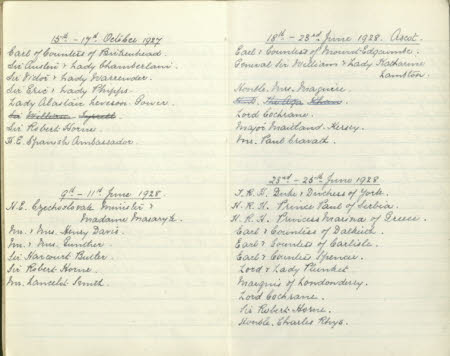 15th - 17th October 1927
Earl & Countess of Birkenhead.
Sir Austen & Lady Chamberlain.
Sir Victor & Lady Warrender.
Sir Eric & Lady Phipps.
Lady Alastair Leveson Gower.
Sir William Tyrrell.
Sir Robert Horne.
H.E. Spanish Ambassador.
9th - 11th June 1928.
H.E. Czechoslovak Minister &
Madame Masaryk.
Mr. & Mrs. Henry Davis.
Mr. & Mrs. Gunther.
Sir Harcourt Butler.
Sir Robert Horne.
Mr. Lancelot Smith.
18th - 23rd June 1928. Ascot.
Earl & Countess of Mount Edgcumbe.
General Sir William & Lady Katharine
Lambton.
Honble. Mrs. Maguire.
H.H. The Aga Khan.
Lord Cochrane.
Major Maitland-Kersey.
Mr. Paul Cravath.
23rd - 25th June 1928.
T.R.H. Duke & Duchess of York.
H.R.H. Prince Paul of Serbia.
H.R.H. Princess Marina of Greece.
Earl & Countess of Dalkeith.
Earl & Countess of Carlisle.
Earl & Countess Spencer.
Lord & Lady Plunket
Marquis of Londonderry.
Lord Cochrane.
Sir Robert Horne.
Honble. Charles Rhys.